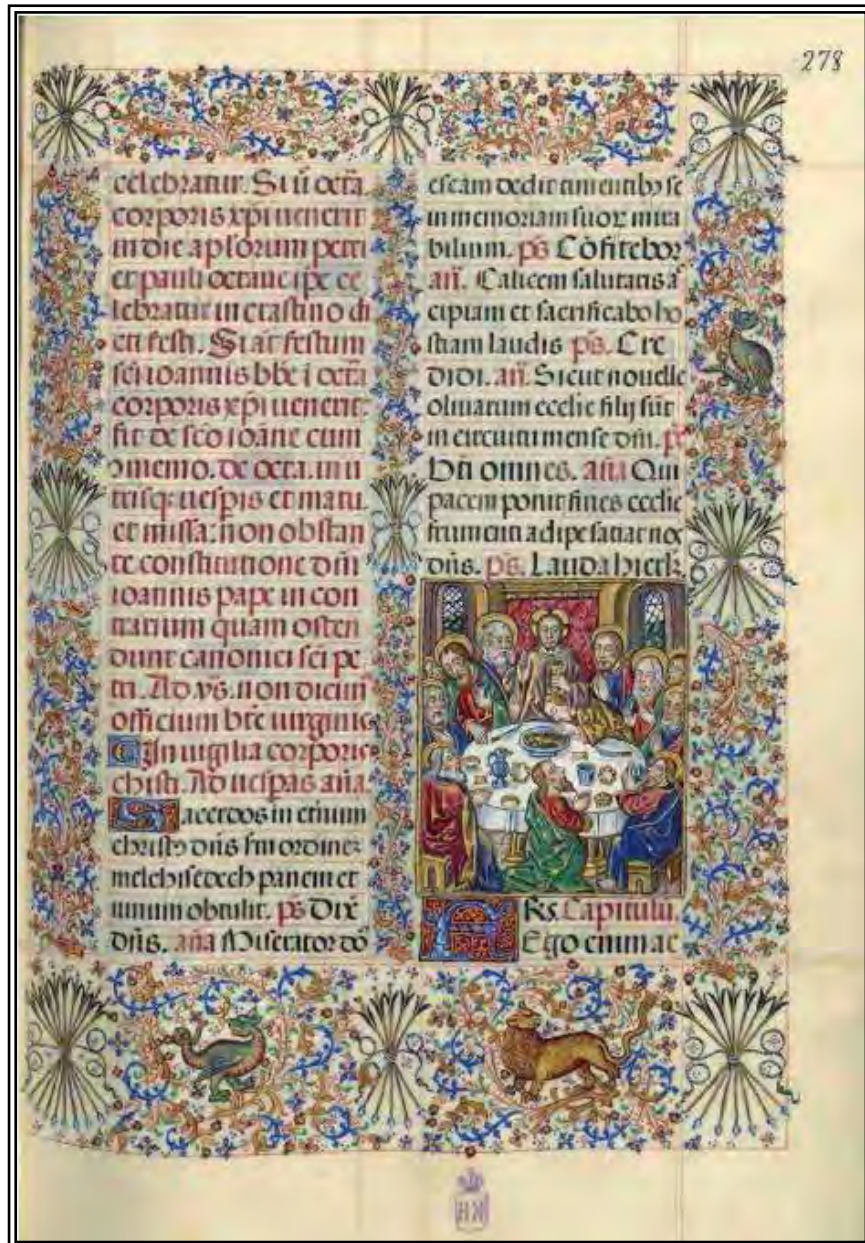 278
celebratur. Si ũ octã
corporis xp̃i uenerit
in die ap̃lorum petri
et pauli octaue ip̃e ce
lebratur in crastino di
cti festi. Si aũt festum
sc̃i ioannis bb̃e ĩ octã
corporis xp̃i uenerit:
fit de sc̃o ioãne cum
ɔmemo. de octa. in u
trisq; uesp̃is et matu.
et missa: non obstan
te constitutione dñi
ioannis pape in con
trarium quam osten
dunt canonici sc̃i pe
tri. Ad ỹs. non dicitur
officium bt̃e uirginis
In uigilia corporis
christi. Ad uesp̃as añã.
Sacerdos in eternum
christꝰ dñs s̃m ordinẽ
melchisedech panem et
uinum obtulit. p̃s Dixit
dñs. añã Miserator dõ
escam dedit timentibꝰ se
in memoriam suoꝝ mira
bilium. p̃s Cõfitebor
añ. Calicem salutaris ac
cipiam et sacrificabo ho
stiam laudis p̃s. Cre
didi. añ. Sicut nouelle
oliuarum ecclie filij sũt
in circuitu mense dñi. p̃s
Bt̃i omnes. añã Qui
pacem ponit fines ecclie
frumenti adipe satiat nos
dñs. p̃s. Lauda hierlz.
FRs. Capitulũ.
Ego enim ac
BN